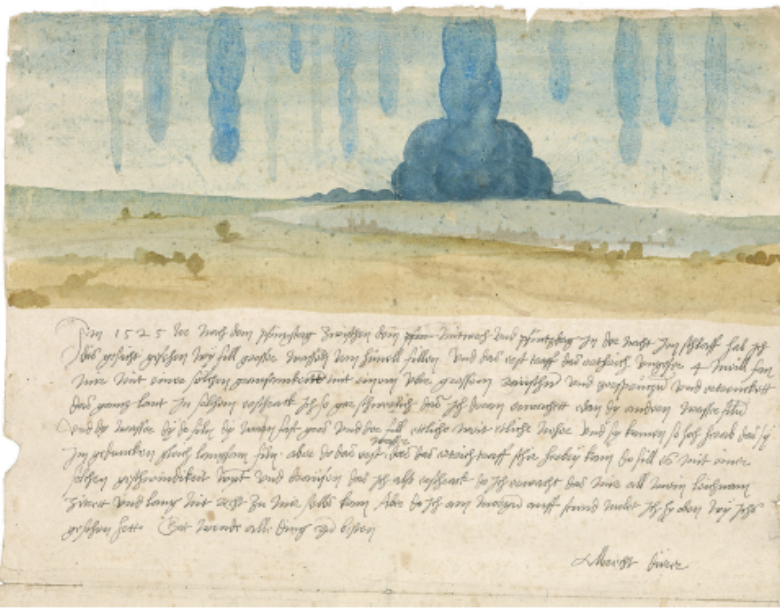 Im 1525 Jor nach dem pfinxstag zwischen dem mitwoch und pfintzdag in der nacht im schlaff hab ich
dis gesicht gesehen wy fill grosser wassern vom himell fillen Und das erst traff das erthrich ungefer 4 meill fan
mir mit einer solchen grausamkeitt mit einem uber grossem raüschn und zersprützn und ertrenckett
das gannz lant In solchem erschrack ich so gar schwerlich das ich doran erwachett edan dy andern wasser filn
Und dy wasser dy do filn dy warn fast gros und der fill ettliche weit etliche neher und sy kamen so hoch herab das sy
im gedancken gleich langsam filn. aber do das erst wasser das das ertrich traff schir herbey kam do fill es mit einer
solchen geschwindikeit wynt und braüsen das ich also erschrack do ich erwacht das mir all mein leichnam
zitrett und lang nit recht zu mir selbs kam Aber do ich am morgn auff stund molet ich hy oben wy ichs
gesehen hett. Got wende alle ding zu besten
Albrecht dürer